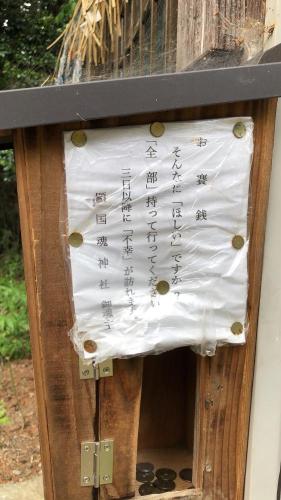 お賽銭
そんなに「ほしい」ですか?
「全部」持って行ってください
三日以降に「不幸」が訪れます。
國国魂神社 御魂主